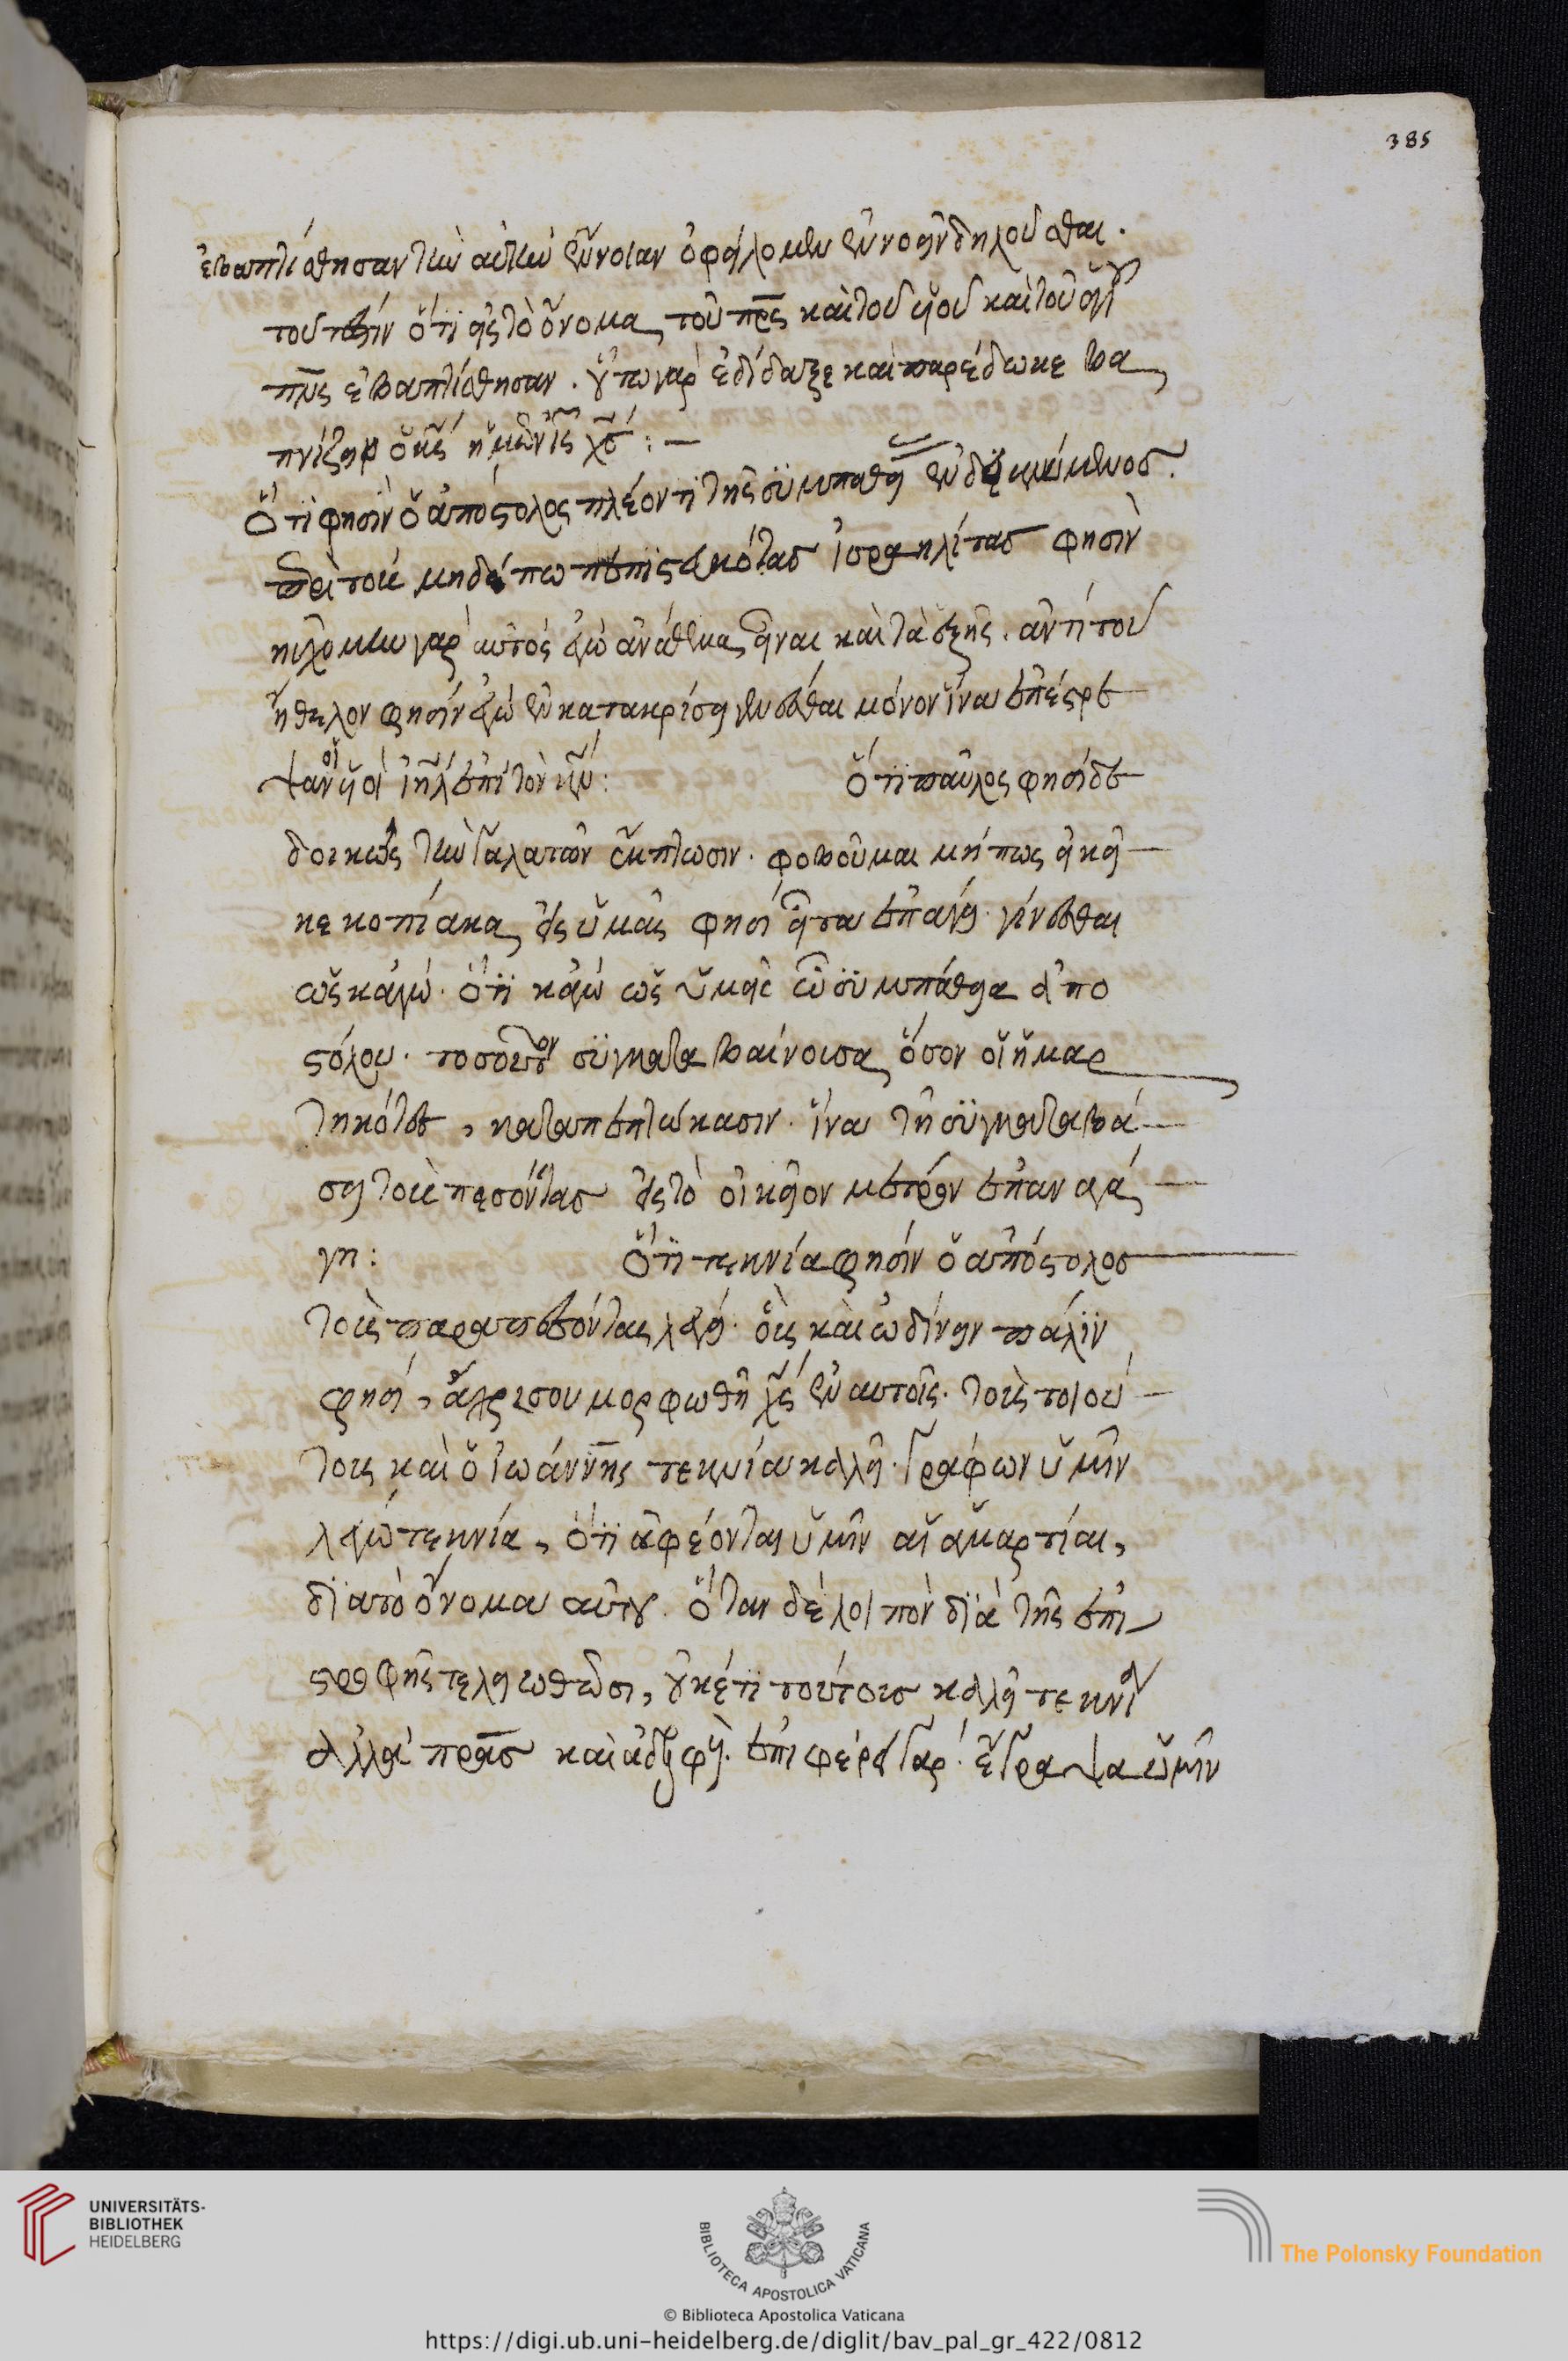 385
ἐβαπτίσθησαν τὴν αὐτὴν ἔννοιαν ὀφείλομεν ἐννοεῖν δηλοῦσθαι.
τουτέστιν ὅτι εἰς τὸ ὄνομα τοῦ πρς καὶ τοῦ υἱοῦ καὶ τοῦ ἁγίου
πνς ἐβαπτίσθησαν. οὕτω γὰρ ἐδίδαξε καὶ παρέδωκε βα
πτίζειν ὁ κς ἡμῶν ις χς: —
Ὅτι φησὶν ὁ ἀπόστολος πλέον τι τῆς συμπαθεί ἐνδεικνύμενος.
περὶ τοὺς μηδέπω πεπιστευκότας ἰσραηλίτας φησὶν
ηὐχόμην γὰρ αὐτὸς ἐγὼ ἀνάθεμα εἶναι καὶ τὰ ἑξῆς. ἀντὶ τοῦ
ἤθελον φησὶν ἐγὼ ἐν κατακρίσει γενέσθαι μόνον ἵνα ἐπέστρε
ψαν οἱ υἱοὶ ιηλ ἐπὶ τὸν κν: Ὅτι παῦλος φησὶ δε
δοικὼς τὴν γαλατῶν ἔκπτωσιν. φοβοῦμαι μήπως εἰκῆ
κεκοπίακα εἰς ὑμᾶς φησί εἶτα ἐπάγει. γίνεσθαι
ὡς κἀγώ. ὅτι κἀγὼ ὡς ὑμεῖς ὦ συμπάθεια ἀπο
στόλου. τοσοῦτον συγκαταβαίνουσα ὅσον οἱ ἡμαρ
τηκότες, καταπεπτώκασιν. ἵνα τῇ συγκαταβά
σει τοὺς πεσόντας εἰς τὸ οἰκεῖον μέτρον ἐπαναγά
γη: Ὅτι τεκνία φησὶν ὁ ἀπόστολος
τοὺς παραπεσόντας λέγει. οὓς καὶ ὠδίνειν πάλιν
φησί, ἄχρις οὗ μορφωθῇ χς ἐν αὐτοῖς. τοὺς τοιού
τους καὶ ὁ ἰωάννης τεκνία καλεῖ. γράφων ὑμῖν
λέγω τεκνία, ὅτι ἀφέονται ὑμῖν αἱ ἁμαρτίαι,
διὰ τὸ ὄνομα αὐτοῦ. ὅταν δὲ λοιπὸν διὰ τῆς ἐπι
στροφῆς τελειωθῶσι, οὐκέτι τούτους καλεῖ τεκνία
ἀλλὰ πρας καὶ ἀδελφού. ἐπιφέρει γάρ. ἔγραψα ὑμῖν
UNIVERSITÄTS-
BIBLIOTHEK
HEIDELBERG
BIBLIOTECA APOSTOLICA VATICANA
The Polonsky Foundation
© Biblioteca Apostolica Vaticana
https://digi.ub.uni-heidelberg.de/diglit/bav_pal_gr_422/0812